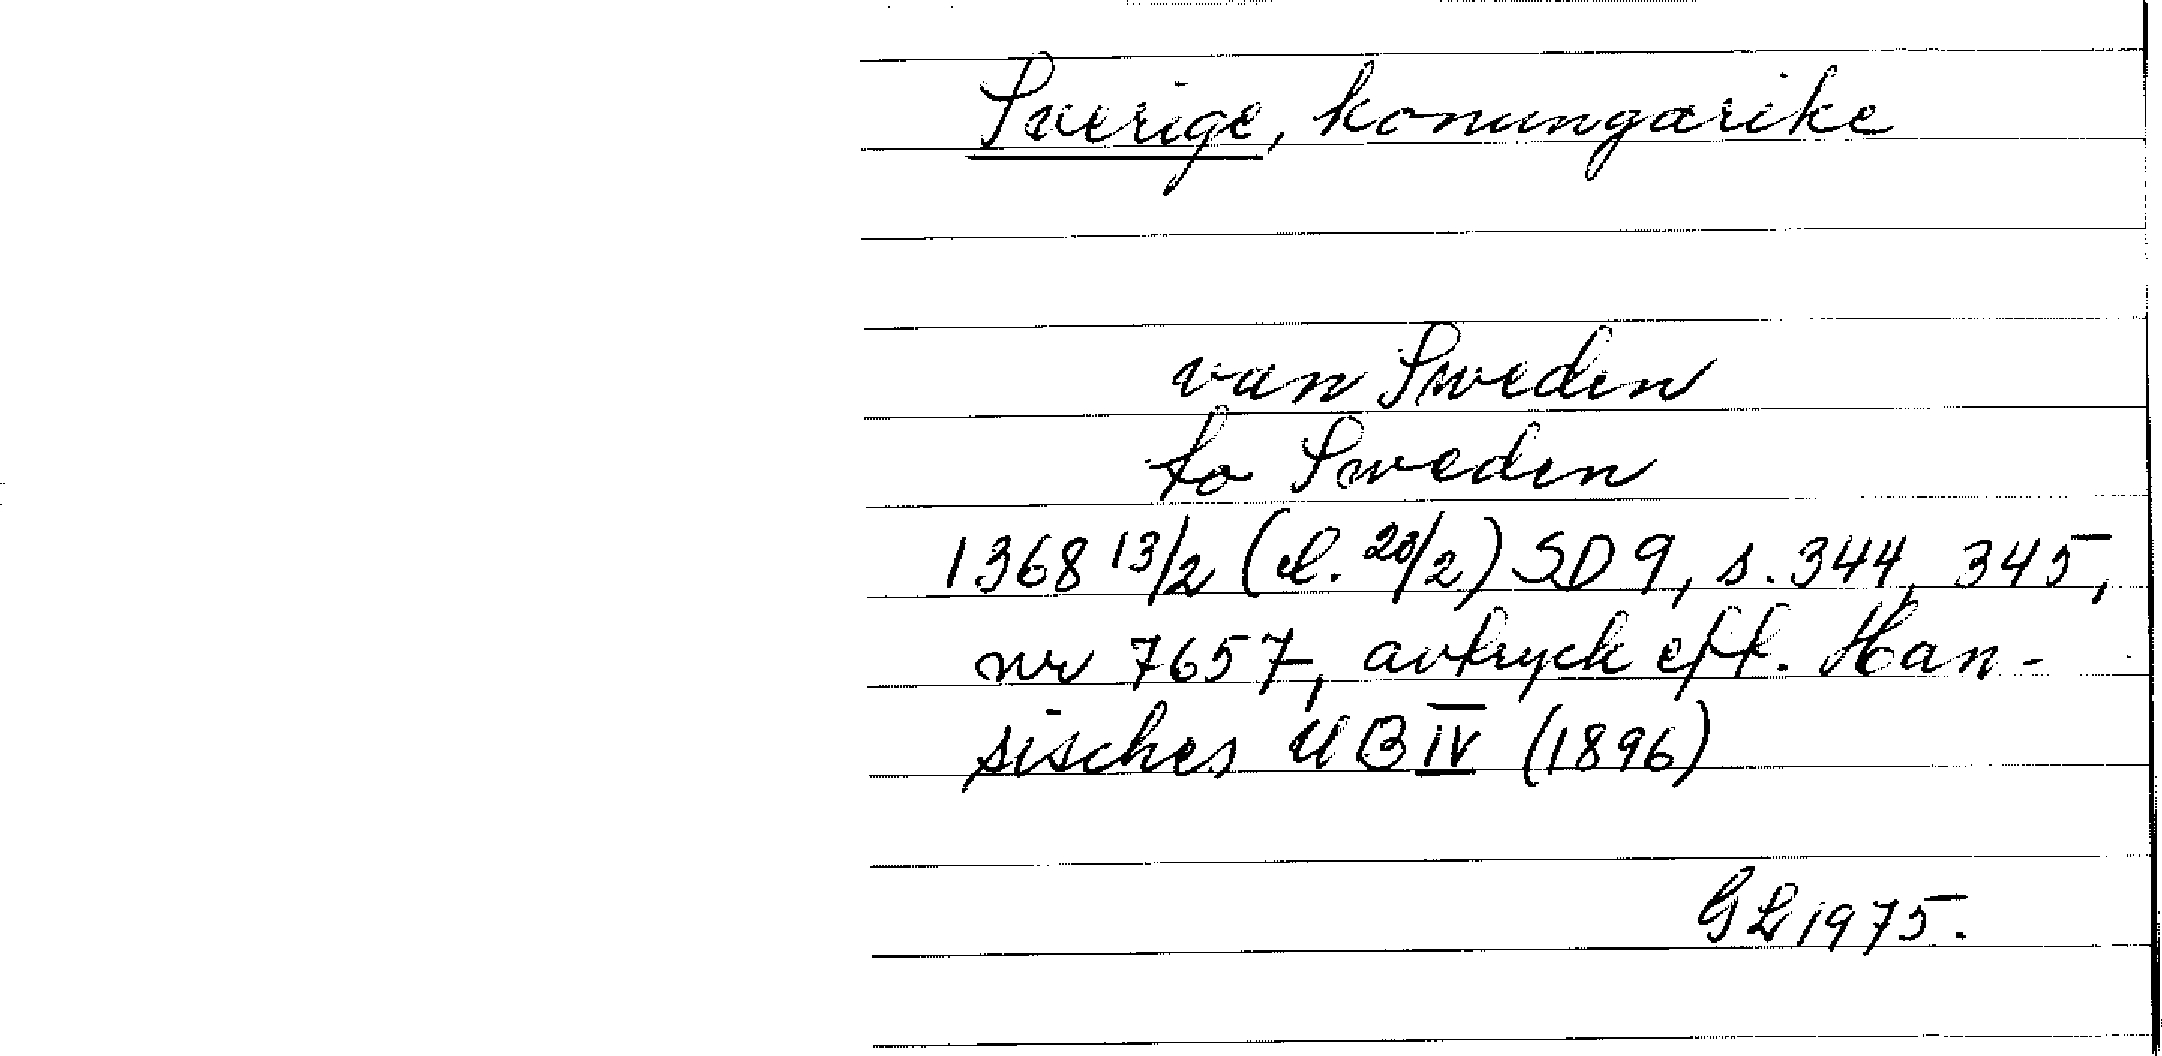 Sverige, konungarike
van Sweden
to Sweden
1368 13/2 (el. 20/2) SD 9, s. 344, 345,
nr 7657, avtryck eft. Han-
sisches UB IV (1896)
GL 1975.